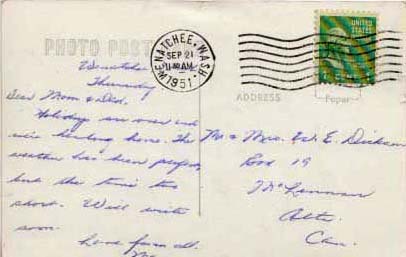 PHOTO POST
WENATCHEE, WASH.
SEP 21
11 AM
1951
UNITED
STATES
ADDRESS
Paper
Thursday
Dear Mom & Dad.
Holidays are over and
we're heading home. The
weather has been perfect,
but the time too
short. Will write
soon.
Love from all.
Mr & Mrs. W. E. Dickson
Box 19
McLennan
Alta.
Can.